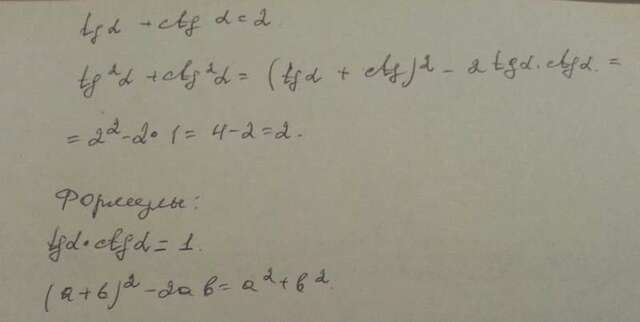 tgα + ctg α = 2.
tg²α + ctg²α = (tgα + ctg)² - 2 tgα·ctgα =
= 2² - 2·1 = 4 - 2 = 2.
Формулы:
tgα·ctgα = 1.
(a+b)² - 2ab = a² + b².